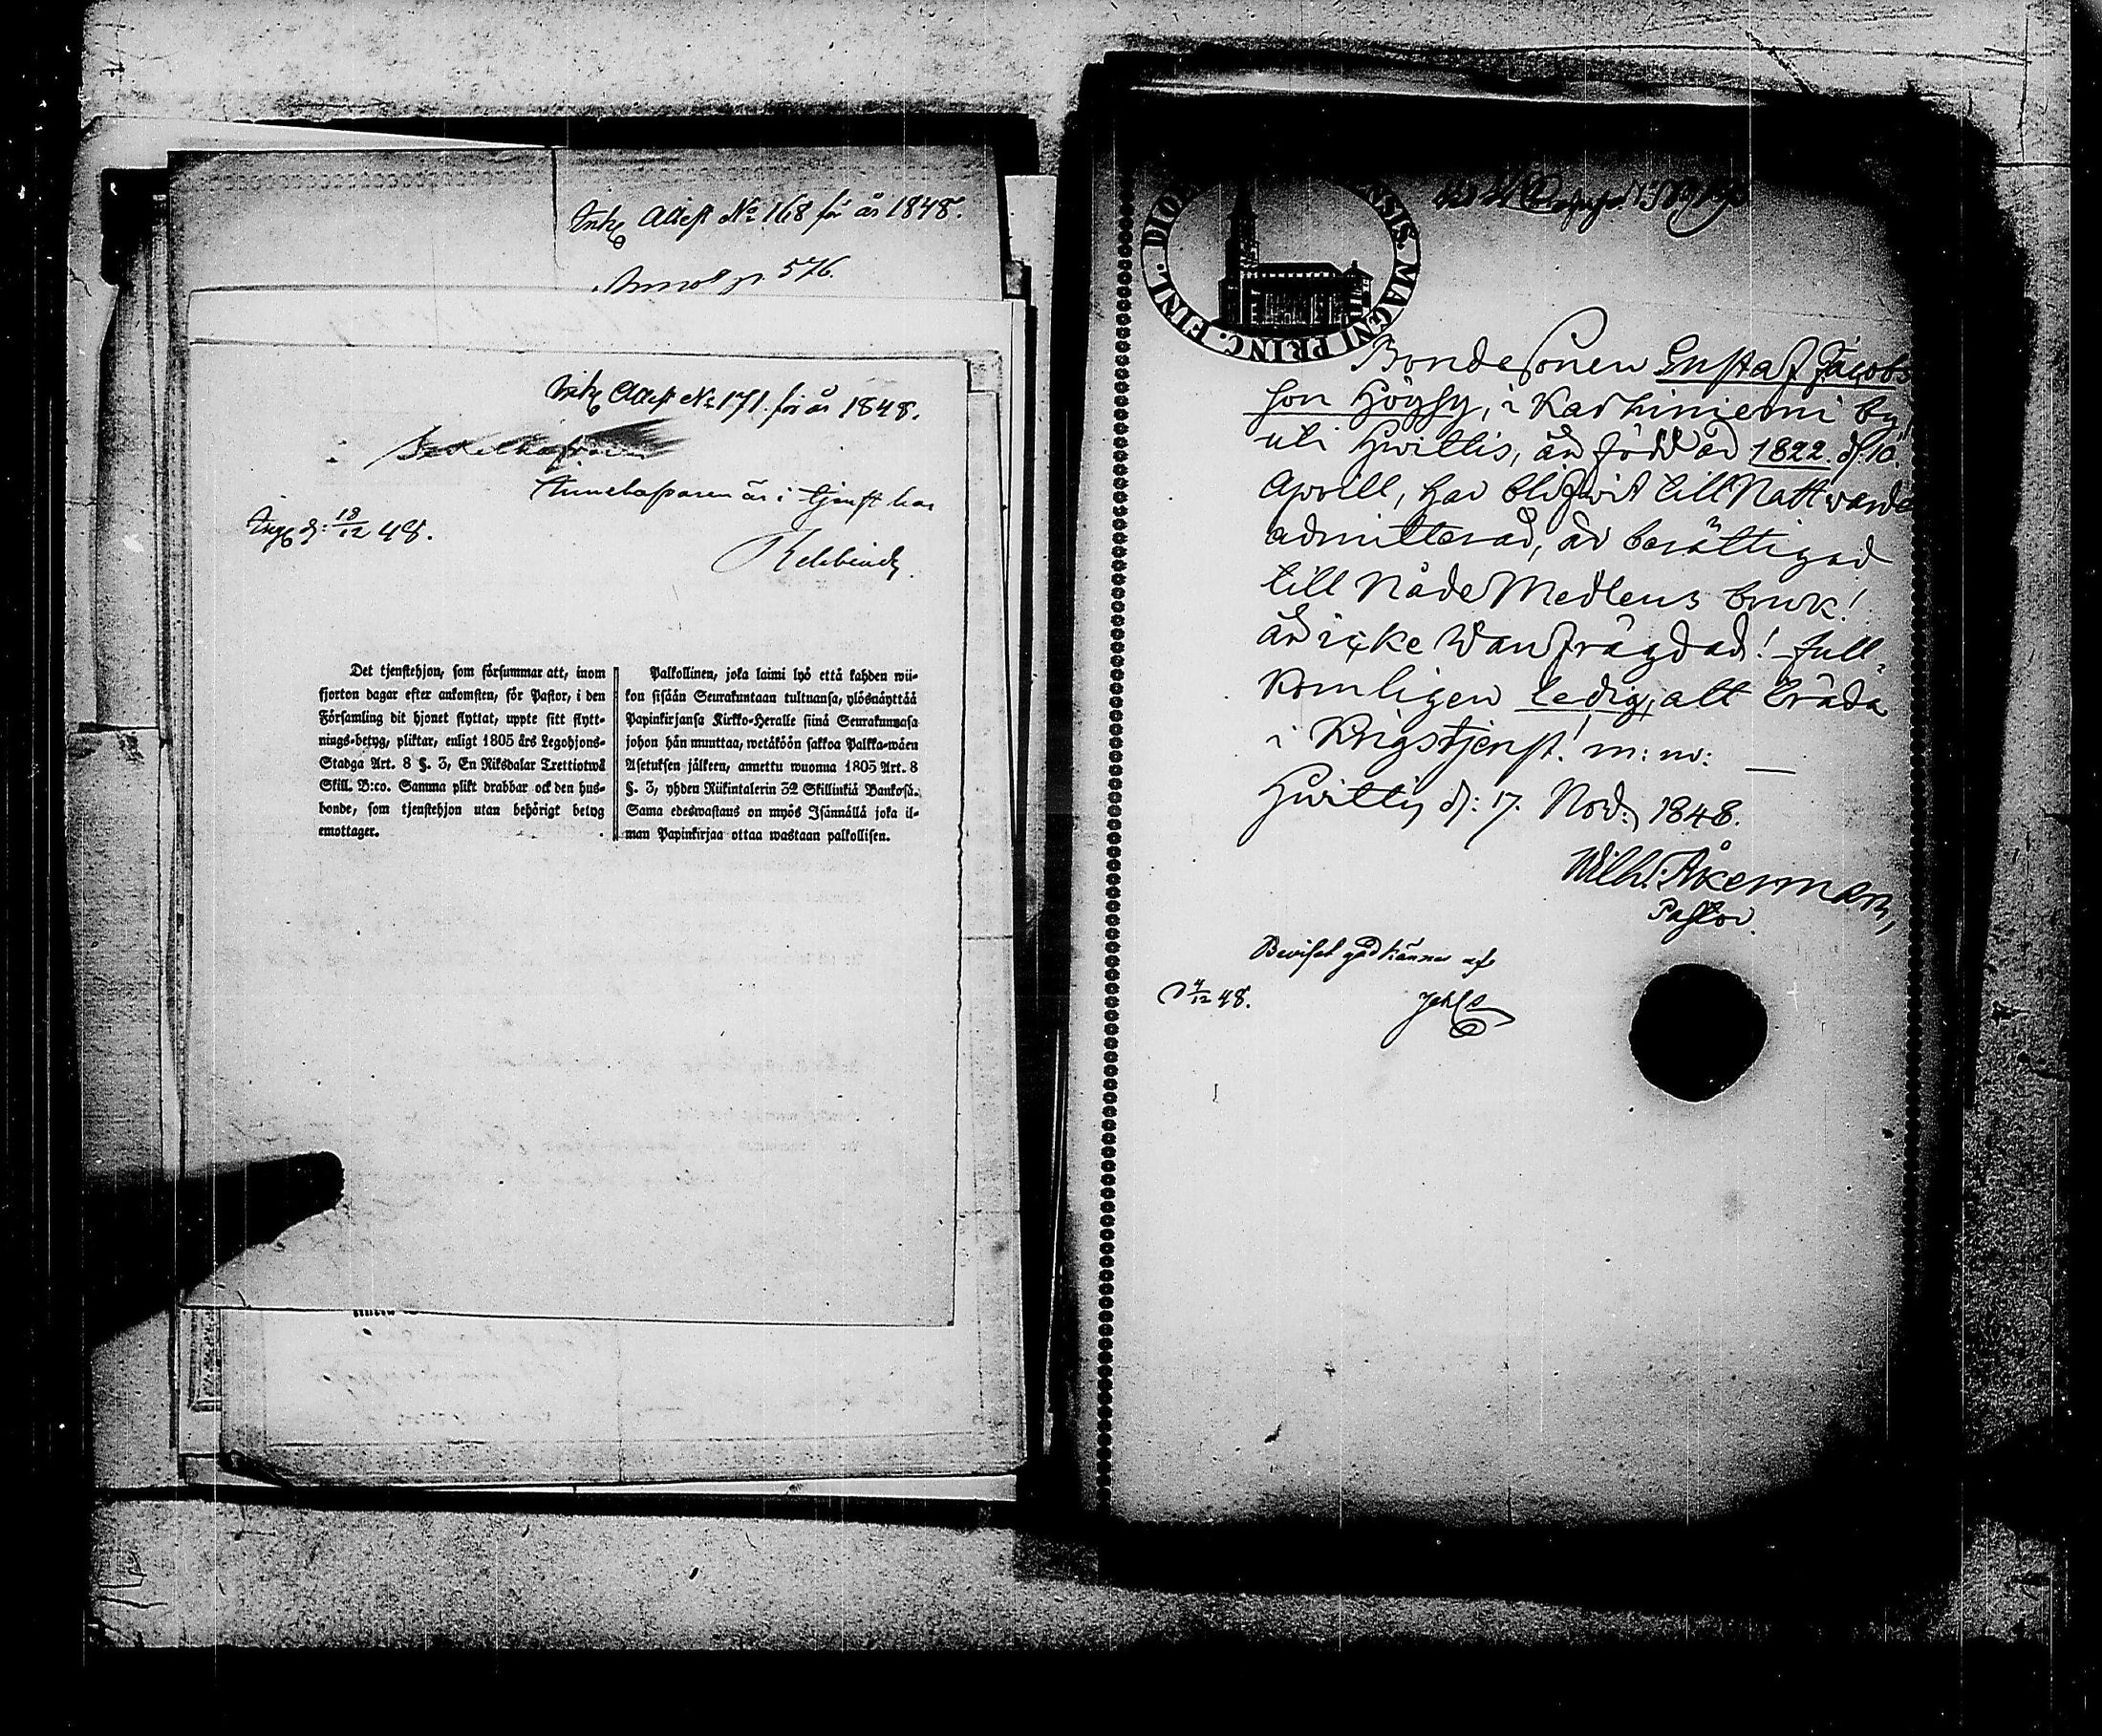 Inkg Attest No 168 för år 1848.
Annot p. 576.
Inkg Attest No 171. för år 1848.
är i tjenst hos
Ingg d: 18/12 48.
Rehbinder.
Det tjenstehjon, som försummar att, inom
fjorton dagar efter ankomsten, för Pastor, i den
Församling dit hjonet flyttat, uppte sitt flytt-
nings-betyg, pliktar, enligt 1805 års Legohjons-
Stadga Art. 8 §. 3, En Riksdalar Trettiotwå
Skill. B:co. Samma plikt drabbar ock den hus-
bonde, som tjenstehjon utan behörigt betyg
emottager.
Palkollinen, joka laimi lyö että kahden wii-
kon sisään Seurakuntaan tultuansa, ylösnäyttää
Papinkirjansa Kirkko-Heralle siinä Seurakunnasa
johon hän muuttaa, wetäköön sakkoa Palkka-wäen
Asetuksen jälkeen, annettu wuonna 1805 Art. 8
§. 3, yhden Riikintalerin 32 Skillinkiä Bankosa.
Sama edeswastaus on myös Isännällä joka il-
man Papinkirjaa ottaa wastaan palkollisen.
MAGNI PRINC. FINL.
Bondesonen Gustaf Jacobs
son Höyhy, i Karhiniemi by
uti Hwittis, är född år 1822 d. 10.
Aprill, har blifwit till Nattward
admitterad, är berättigad
till Nåde Medlens bruk!
är icke wanfrägdad! full-
komligen ledig, att träda
i Krigstjenst! m: m: —
Hwittis d: 17. Nov: 1848.
Wilh: Åkerman,
Pastor.
Beviset godkännes af
d 4/12 48.